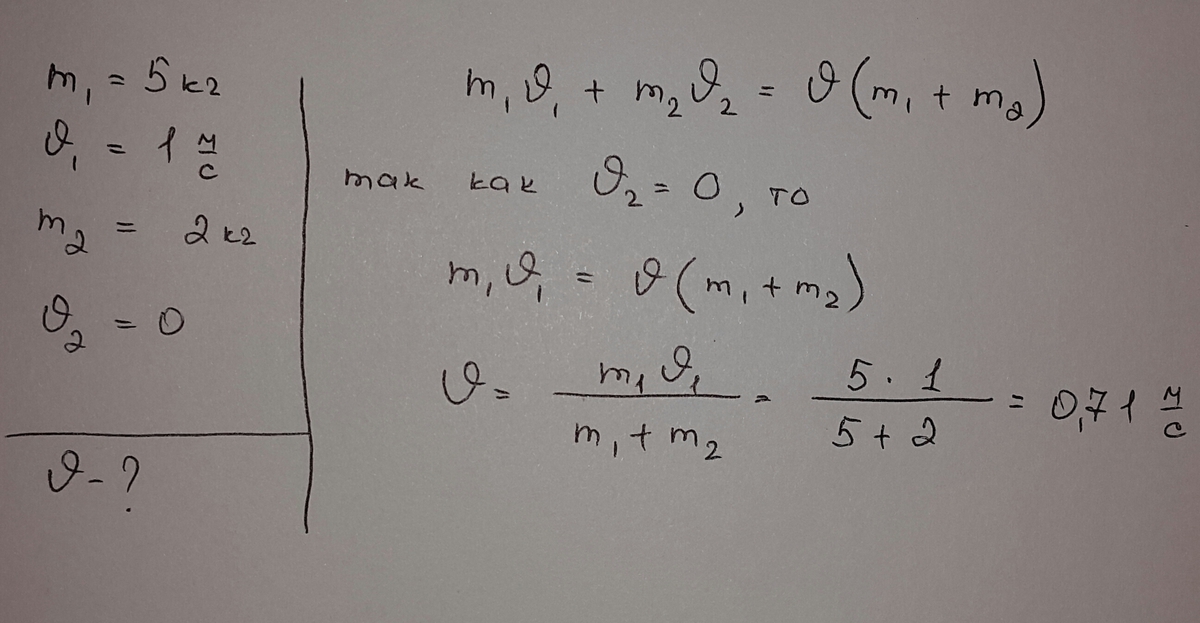 m₁ = 5 кг
𝜗₁ = 1 м/с
m₂ = 2 кг
𝜗₂ = 0
𝜗 - ?
m₁𝜗₁ + m₂𝜗₂ = 𝜗(m₁ + m₂)
так как 𝜗₂ = 0, то
m₁𝜗₁ = 𝜗(m₁ + m₂)
𝜗 = m₁𝜗₁ / m₁ + m₂ = 5 · 1 / 5 + 2 = 0,71 м/с